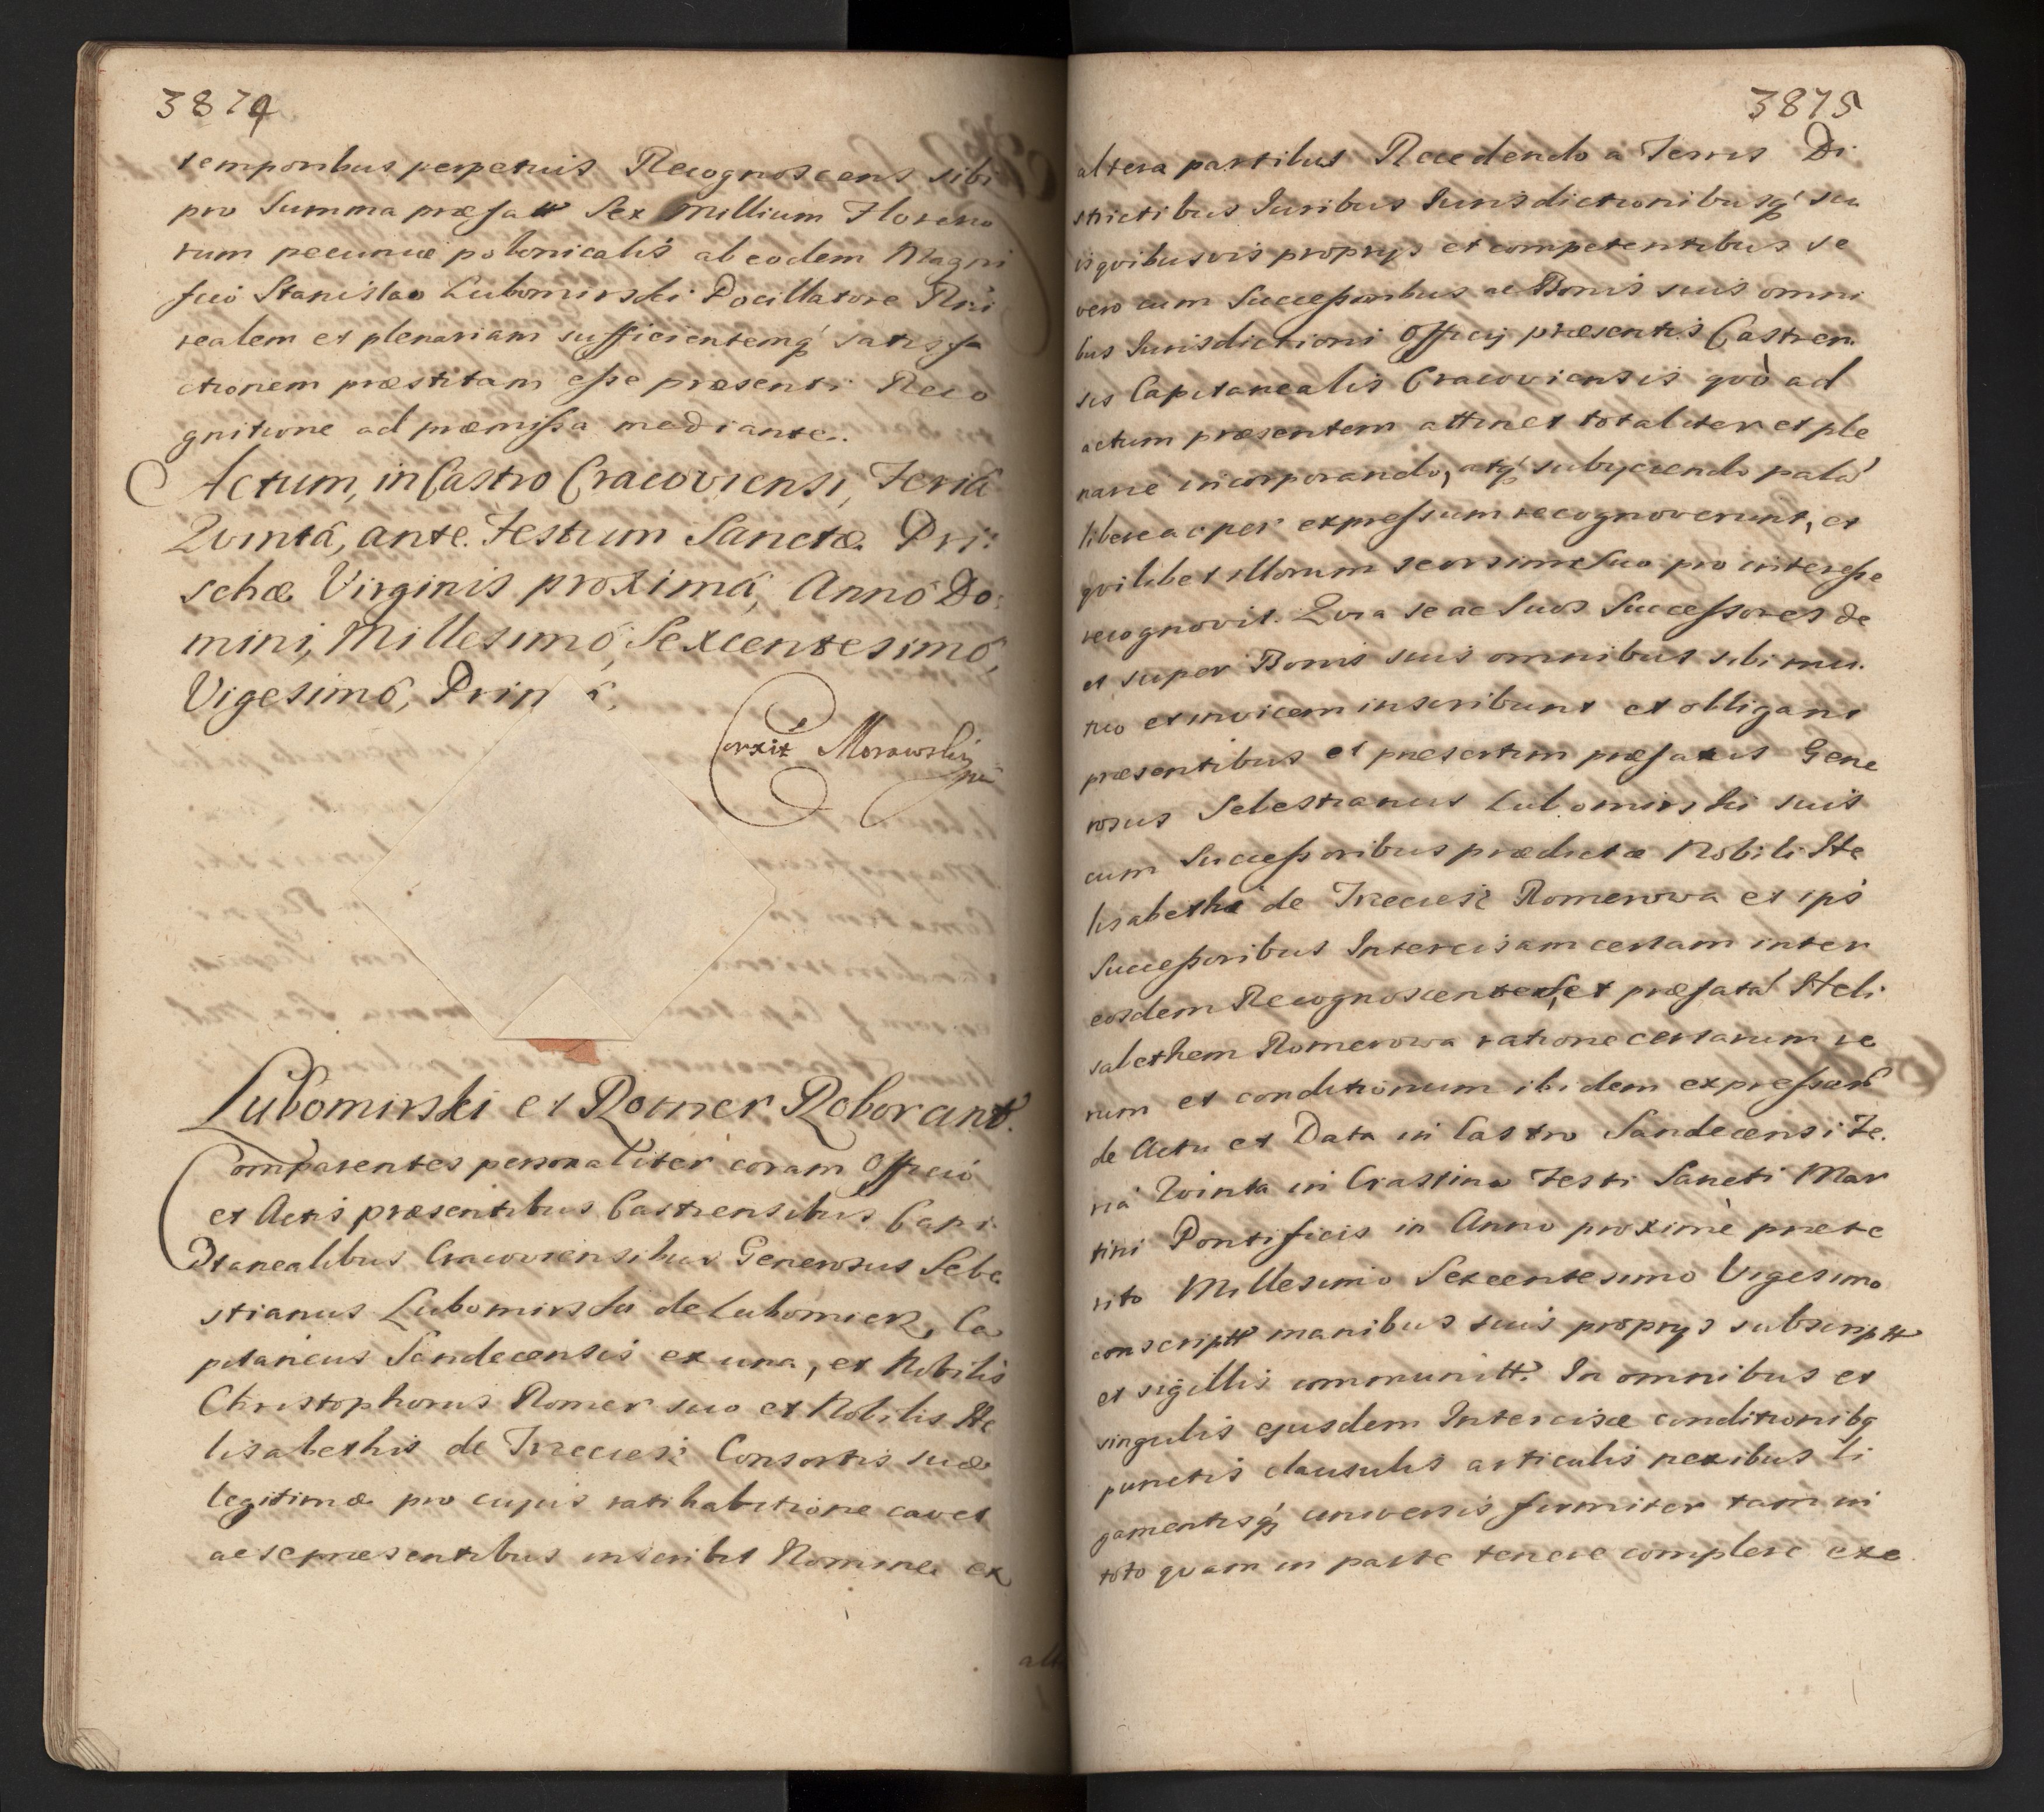 3874
temporibus perpetuis Recognoscens sibi
pro Summa præfatt Sex Millium Floreno
rum pecuniæ polonicalis ab eodem Magni
fico Stanislao Lubomirski Pocillatore Rni
realem et plenariam sufficientemq́ satisfa
ctionem præstitam esse præsenti Reco
gnitione ad præmissa mediante.
Actum, in Castro Cracoviensi, Feriá
Qvintá, ante Festum Sanctæ Pri:
schæ Virginis proximá, Annó Do:
mini, Millesimó, Sexcentesimó,
Vigesimó, Prim
Corxit Morawski
mp
Lubomirski et Romer Roborant.
Comparentes personaliter coram Offició
et Actis præsentibus Castrensibus Capi:
tanealibus Cracoviensibus Generosus Seba
stianus Lubomirski de Lubomierz, Ca
pitaneus Sandecensis ex una, et Nobilis
Christophorus Romer suo et Nobilis He
lisabethis de Trzeciesz Consortis suæ
legitimæ pro cujus ratihabitione cavet
ac se præsentibus inscribit Nomine ex
alt
3875
altera partibus Recedendo á Terris Di
strictibus Juribus Jurisdictionibusq́ su
is qvibusvis proprijs et competentibus se
vero cum Successoribus ac Bonis suis omni
bus Jurisdictioni Officij præsentis Castren
sis Capitanealis Cracoviensis qvò ad
actum præsentem attinet totaliter et ple
narie incorporando, atq́ subijciendo palá
libere ac per expressum recognoverunt, et
qvilibet illorum seorsim Suo pro interesse
recognovit. Qvia se ac suos Successores de
et super Bonis suis omnibus sibi mu
tuo et invicem inscribunt et obligant
præsentibus et præsertim præfatus Gene
rosus Sebestianus Lubomirski suis
cum Successoribus prædictæ Nobili He
lisabethæ de Trzeciesz Romerowa et ips
Successoribus Intercisam certam inter
eosdem Recognoscentes, et præfatá Heli
sabethem Romerowa ratione certarum re
rum et conditionum ibidem expressar
de Actu et Data in Castro Sandecensi Fe.
riá Qvinta in Crastino Festi Sancti Mar
tini Pontificis in Anno proximè præte
rito Millesimo Sexcentesimo Vigesimo
conscriptt manibus suis proprijs subscriptt
et sigillis communitt. In omnibus et
singulis ejusdem Intercisæ conditionibq
punctis clausulis articulis nexibus li
gamentisq́ universis firmiter tam in
toto quam in parte tenere complere exe